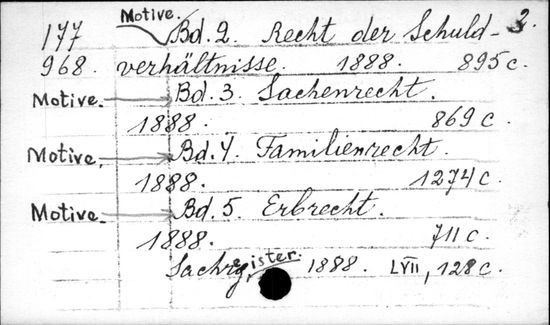 Motive.
177 Bd. 2. Recht der Schuld- 2.
968. verhältnisse. 1888. 895 с.
Motive. Bd. 3. Sachenrecht.
1888. 869 с.
Motive. Bd. 4. Familienrecht.
1888. 1274 с.
Motive. Bd. 5. Erbrecht.
1888. 711 с.
Sachregister. 1888. LVII, 128 с.